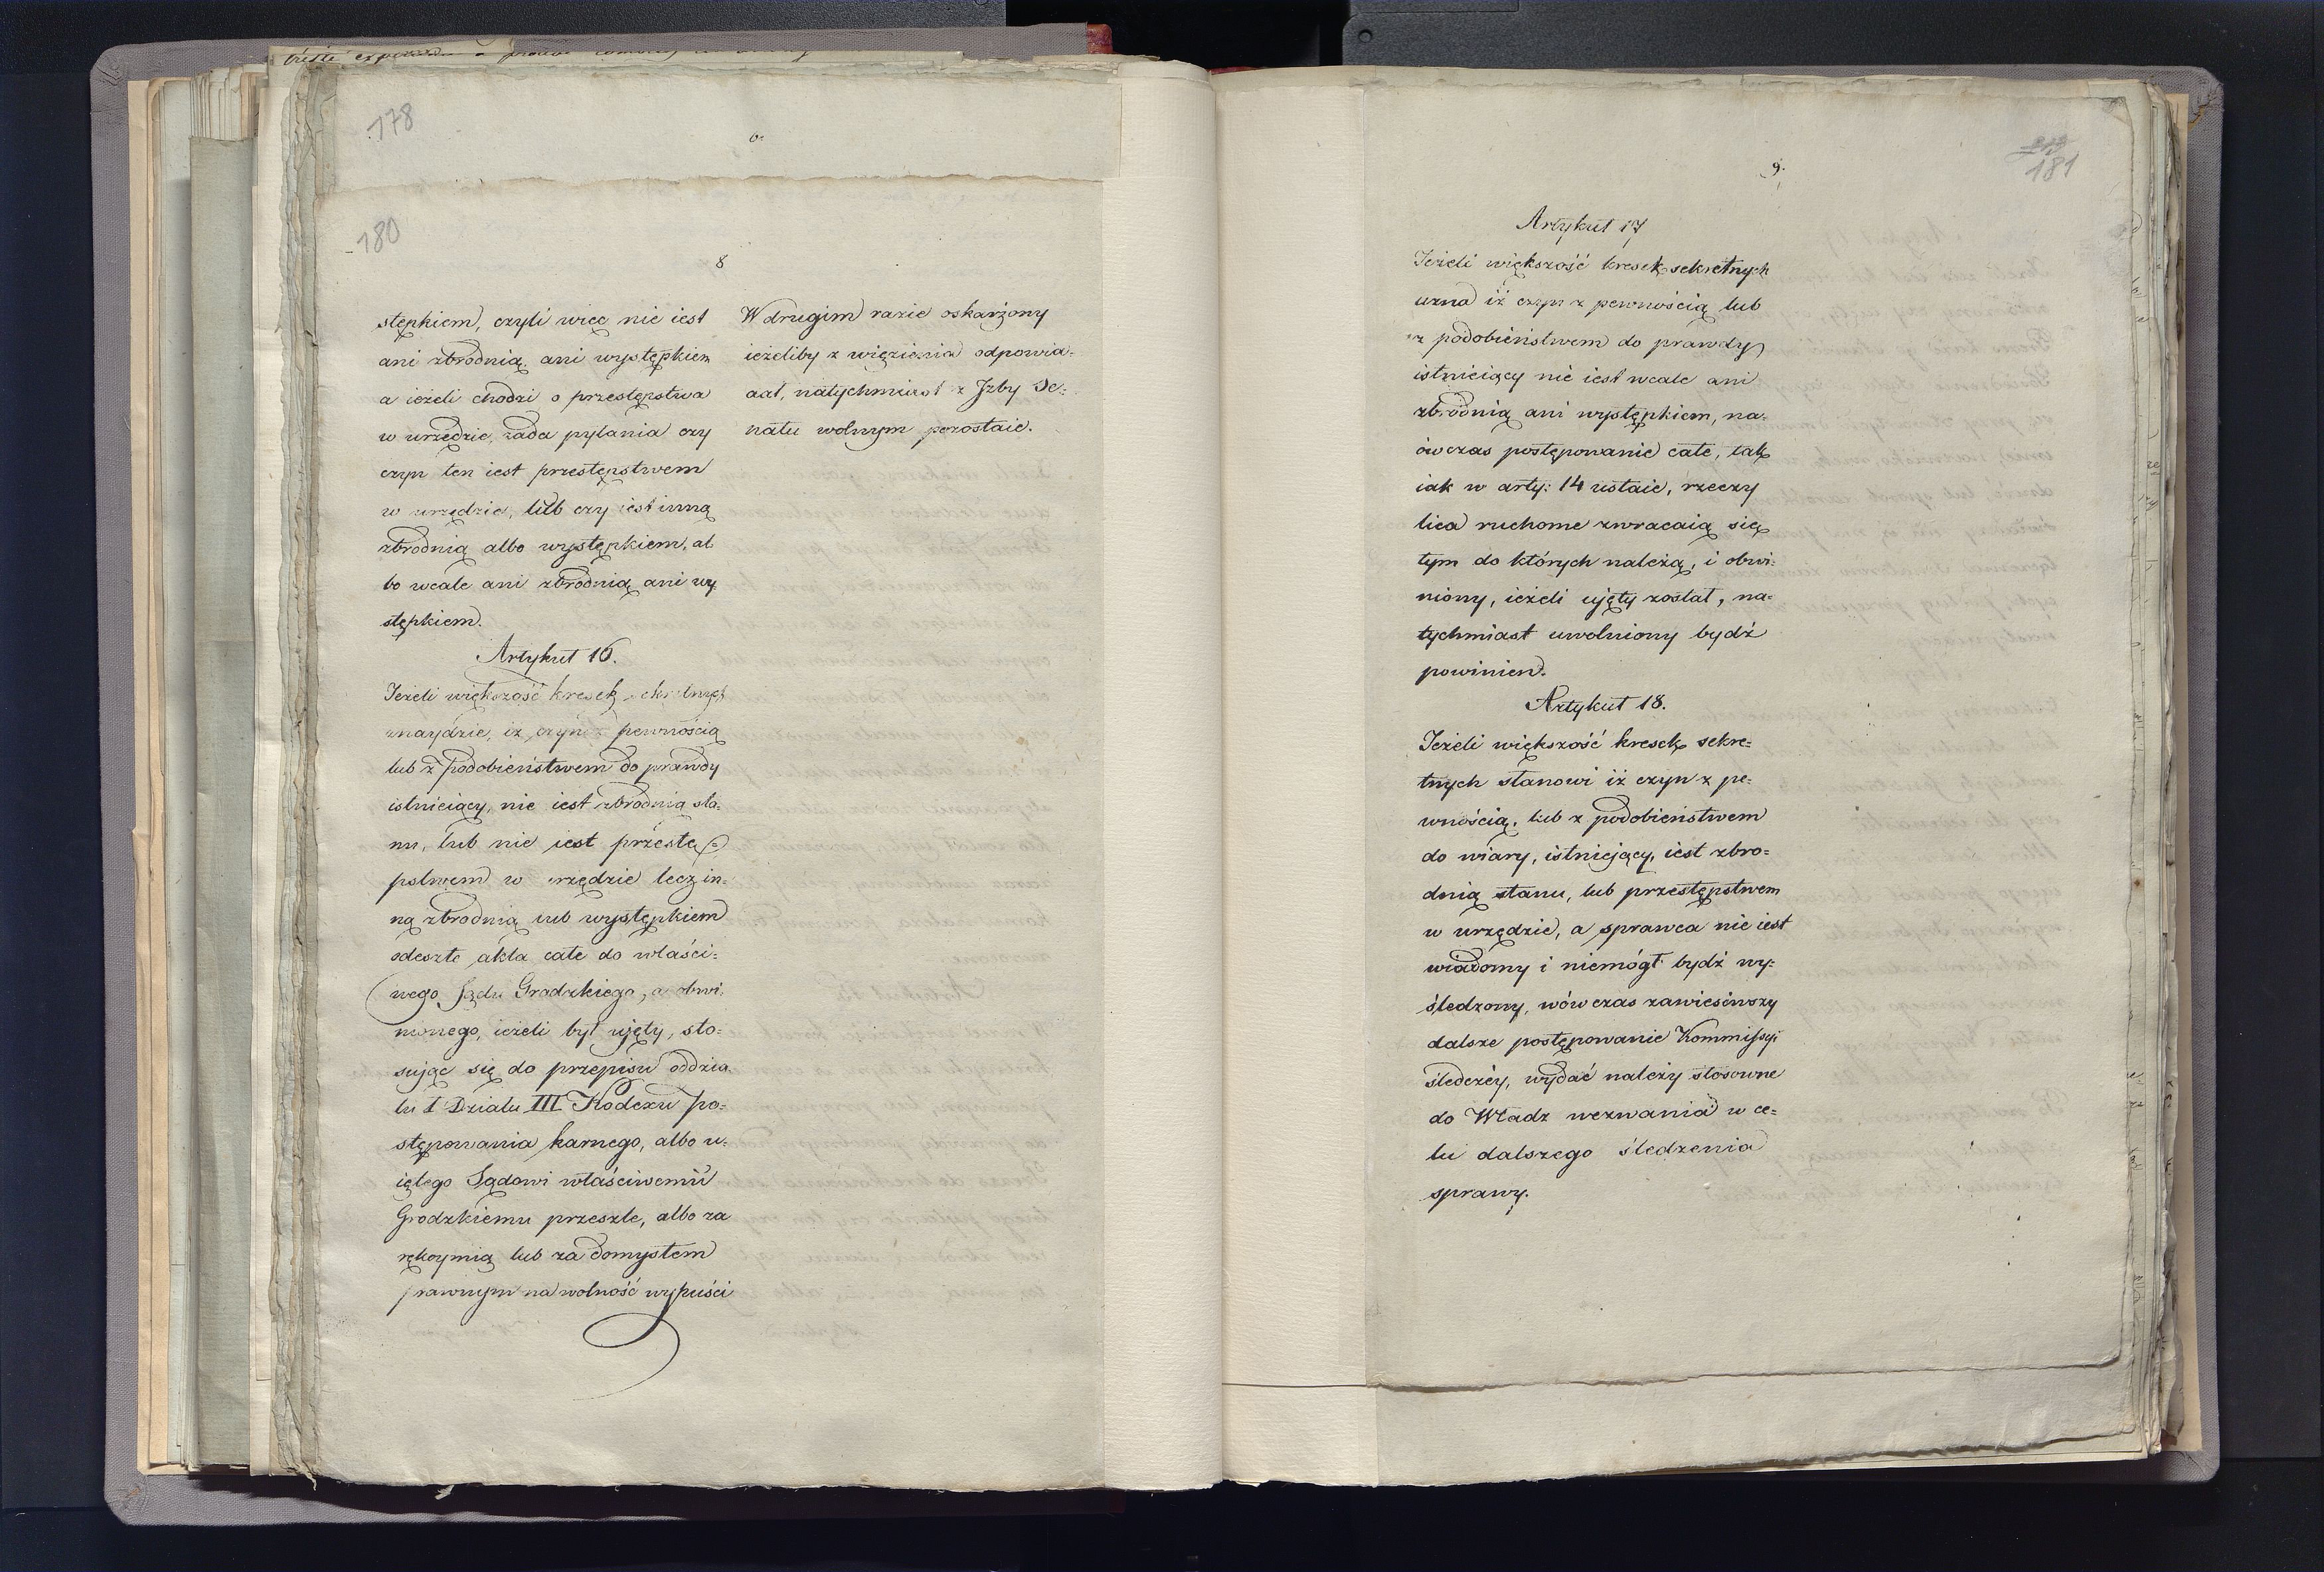 178
6.
180
8
stępkiem, czyli więc nie iest
ani zbrodnią, ani występkiem
a ieżeli chodzi o przestępstwa
w urzędzie, zada pytania czy
czyn ten iest przestępstwem
w urzędzie, lub czy iest inną
zbrodnią albo występkiem, al
bo wcale ani zbrodnią ani wy
stępkiem.
Artykuł 16.
Jeżeli większość kresek sekretnych
znaydzie, iż czyn z pewnością
lub z podobieństwem do prawdy
istnieiący, nie iest zbrodnią sta=
nu, lub nie iest przestę=
pstwem w urzędzie lecz in=
ną zbrodnią lub występkiem
odeszle akta całe do właści=
wego Sądu Grodzkiego, a obwi
nionego, ieżeli był ujęty, sto=
sując się do przepisu oddzia
łu I Działu III Kodexu po=
stępowania karnego, albo u=
iętego Sądowi właściwemu
Grodzkiemu przeszle, albo za
rękoymią lub za domysłem
prawnym na wolność wypuści
W drugim razie oskarżony
ieżeliby z więzienia odpowia=
dał, natychmiast z Izby Se=
natu wolnym pozostaie.
9.
181
Artykuł 17
Jeżeli większość kresek sekretnych
uzna iż czyn z pewnością lub
z podobieństwem do prawdy
istnieiący nie iest wcale ani
zbrodnią ani występkiem, na=
ówczas postępowanie całe, tak
iak w arty: 14 ustaie, rzeczy
lica ruchome zwracaią się
tym do których należą, i obwi=
niony, ieżeli ujęty został, na=
tychmiast uwolniony bydź
powinien.
Artykuł 18.
Jeżeli większość kresek sekre=
tnych stanowi iż czyn z pe=
wnością, lub z podobieństwem
do wiary, istniejący, iest zbro=
dnią stanu, lub przestępstwem
w urzędzie, a sprawca nie iest
wiadomy i niemógł bydź wy=
śledzony, wówczas zawiesiwszy
dalsze postępowanie Kommissyi
śledczéy, wydać należy stosowne
do Władz wezwania w ce=
lu dalszego śledzenia
sprawy.